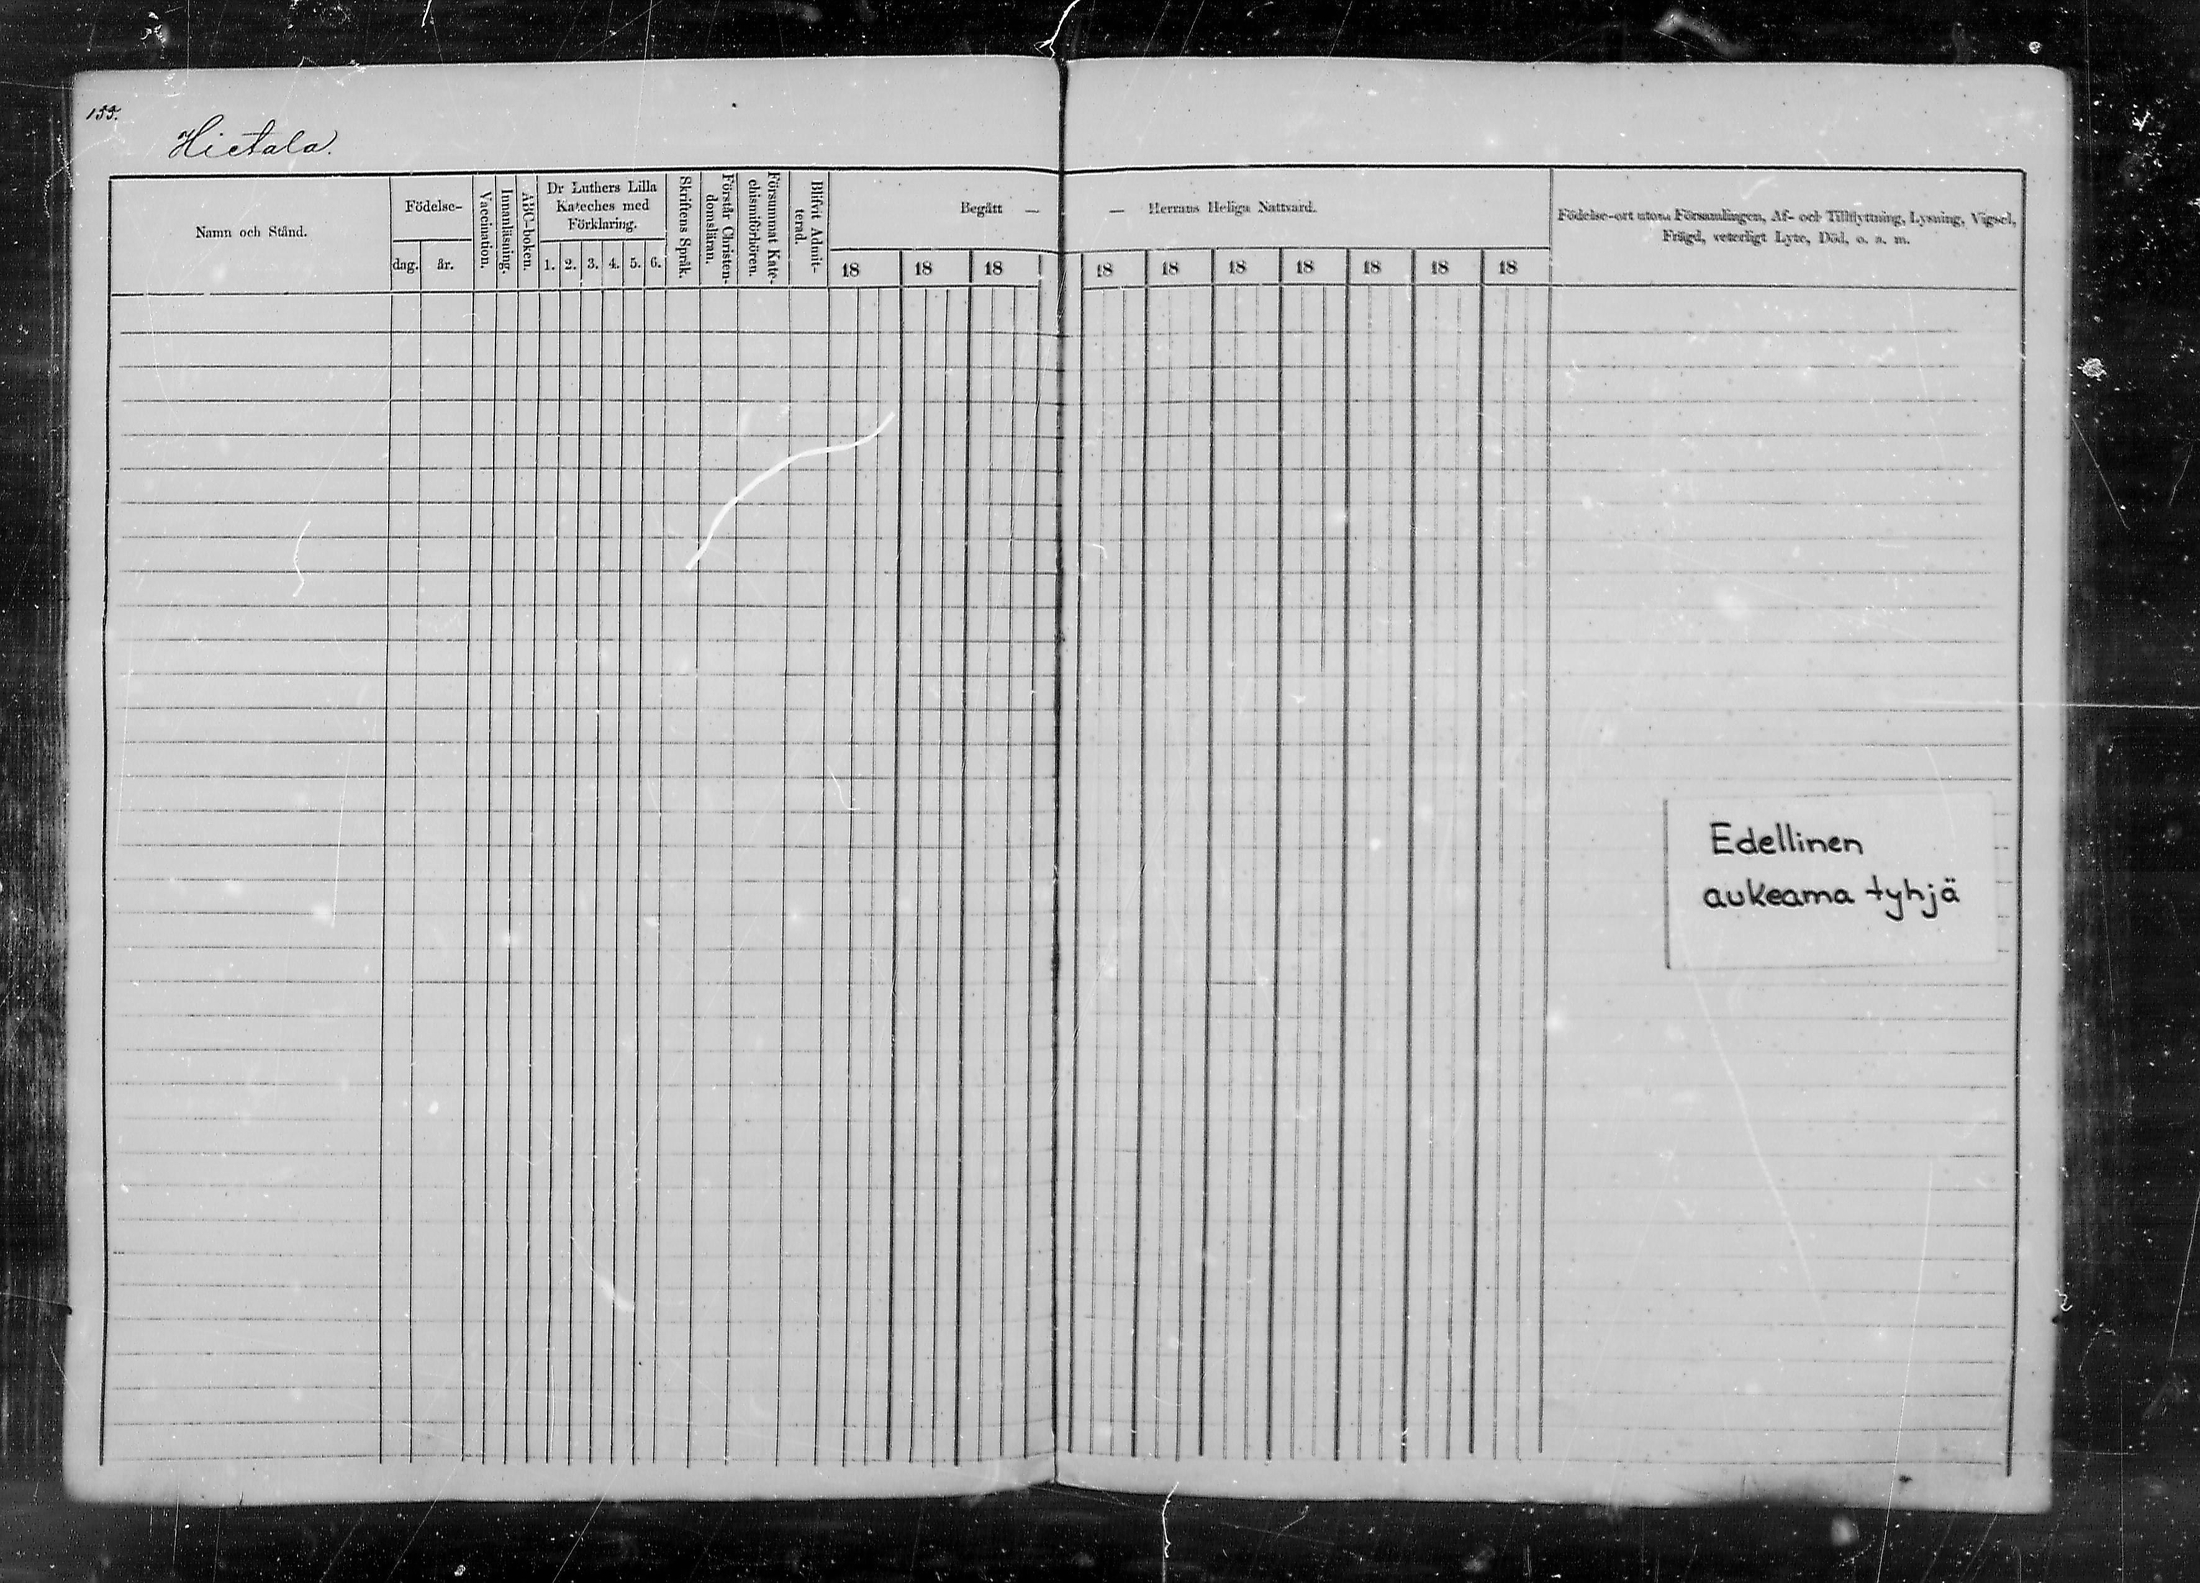 155.
Hietala.
Namn och Stånd.
Födelse-
dag.
år.
Vaccination.
Innanläsning.
ABC-boken.
Dr Luthers Lilla
Kateches med
Förklaring.
1. 2. 3. 4. 5. 6.
Skriftens Språk.
Förstår Christen-
domsläran.
Försummat Kate-
chismiförhören.
Blifvit Admit-
terad.
Begått —
18 18 18
— Herrans Heliga Nattvard.
18 18 18 18 18 18 18
Födelse-ort utom Församlingen, Af- och Tillflyttning, Lysning, Vigsel,
Frägd, veterligt Lyte, Död, o. s. m.
Edellinen
aukeama tyhjä